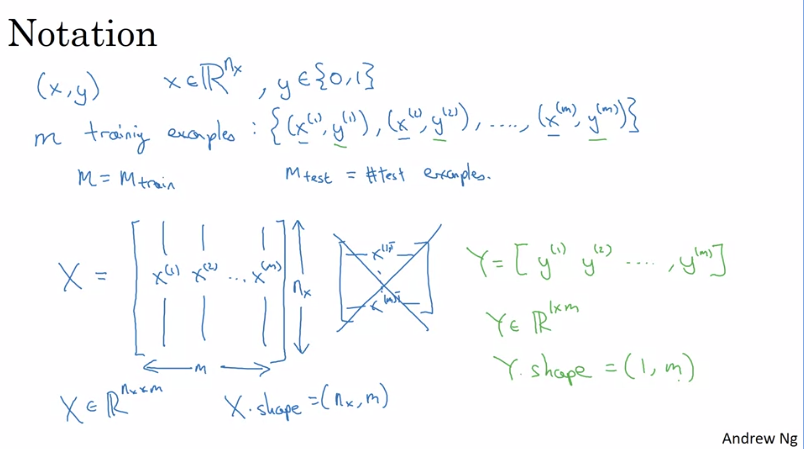 Notation
(x,y) x ∈ ℝ^{n_x}, y ∈ {0,1}
m training examples : {(x^{(1)}, y^{(1)}), (x^{(2)}, y^{(2)}), ...., (x^{(m)}, y^{(m)})}
M = M_{train} M_{test} = #test examples.
X = [x^{(1)} x^{(2)} ... x^{(m)}] n_x
m
x^{(1)T}
x^{(m)T}
Y = [y^{(1)} y^{(2)} .... , y^{(m)}]
Y ∈ ℝ^{1×m}
Y.shape = (1, m)
X ∈ ℝ^{n_x×m} X.shape = (n_x, m)
Andrew Ng